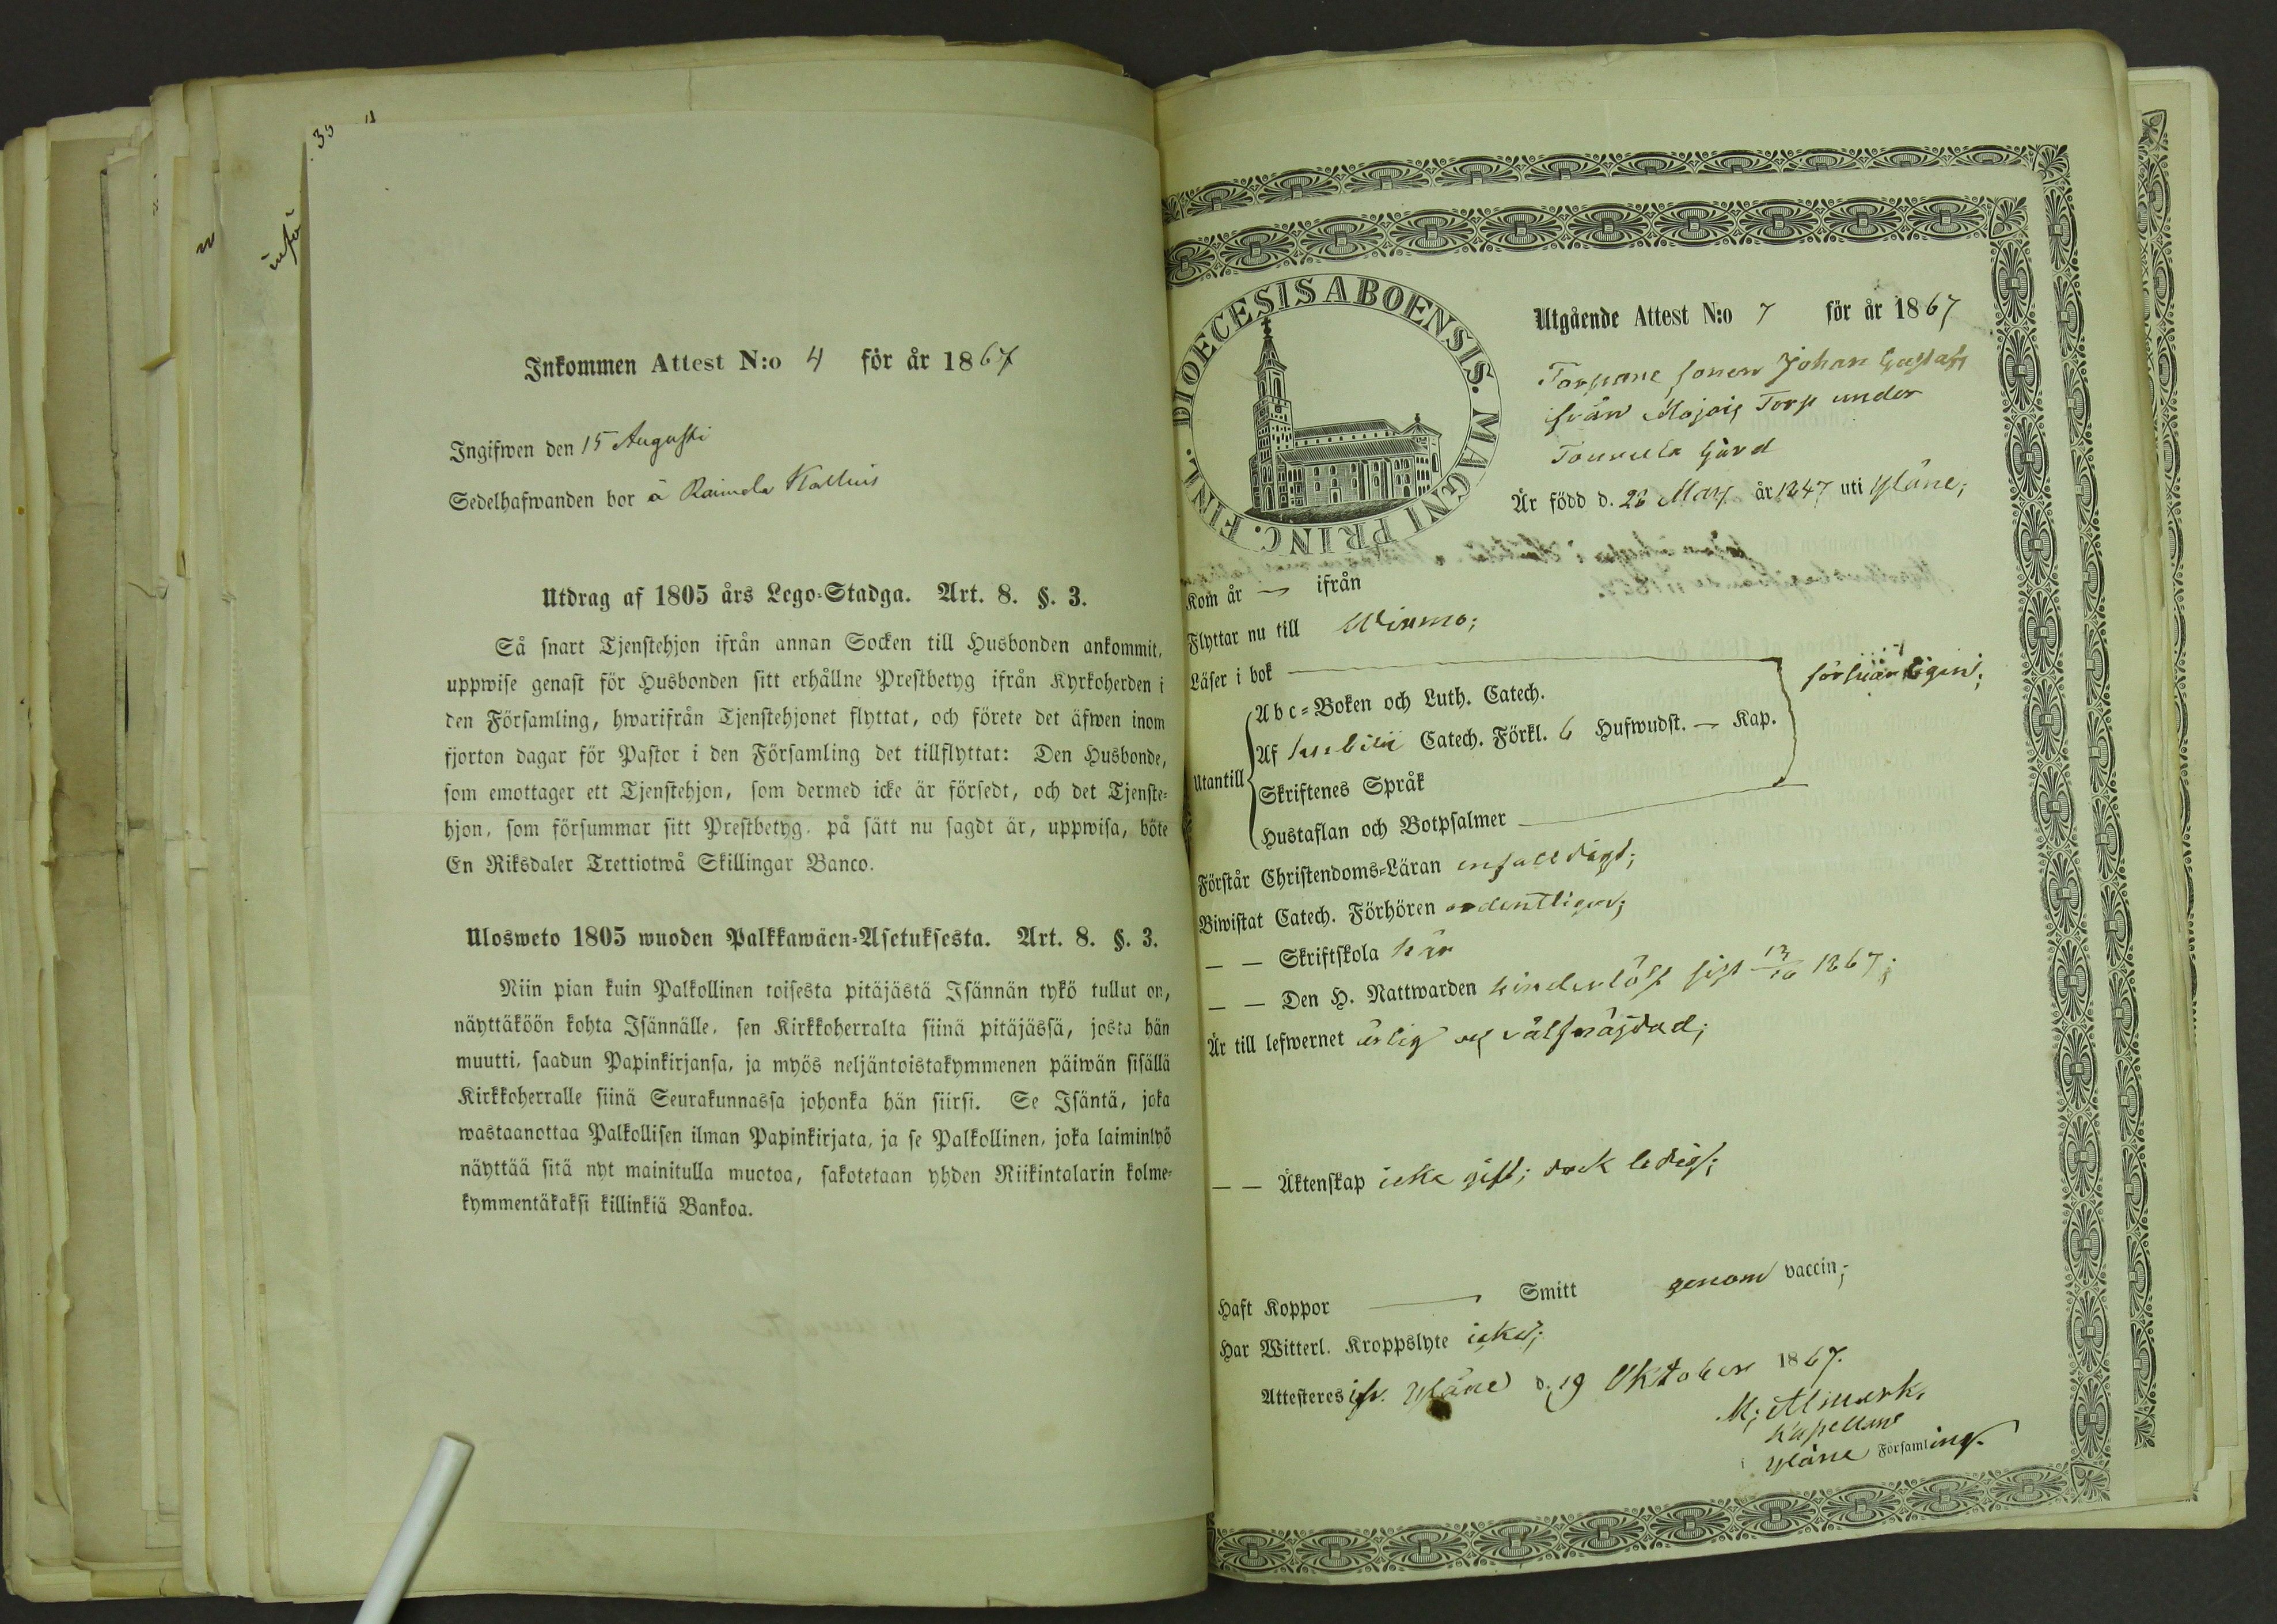 Inkommen Attest N:o 4 för år 1867
Ingifwen den 15 Augusti
Sedelhafwanden bor å Raimela Kallius
Utdrag af 1805 års Lego-Stadga. Art. 8. §. 3.
Så snart Tjenstehjon ifrån annan Socken till Husbonden ankommit,
uppwise genast för Husbonden sitt erhållne Prestbetyg ifrån Kyrkoherden i
den Församling, hwarifrån Tjenstehjonet flyttat, och förete det äfwen inom
fjorton dagar för Pastor i den Församling det tillflyttat: Den Husbonde,
som emottager ett Tjenstehjon, som dermed icke är försedt, och det Tjenste-
hjon, som försummar sitt Prestbetyg, på sätt nu sagdt är, uppwisa, böte
En Riksdaler Trettiotwå Skillingar Banco.
Ulosweto 1805 wuoden Palkkawäen-Asetuksesta. Art. 8. §. 3.
Niin pian kuin Palkollinen toisesta pitäjästä Isännän tykö tullut on,
näyttäköön kohta Isännälle, sen Kirkkoherralta siinä pitäjässä, josta hän
muutti, saadun Papinkirjansa, ja myös neljäntoistakymmenen päiwän sisällä
Kirkkoherralle siinä Seurakunnassa johonka hän siirsi. Se Isäntä, joka
wastaanottaa Palkollisen ilman Papinkirjata, ja se Palkollinen, joka laiminlyö
näyttää sitä nyt mainitulla muotoa, sakotetaan yhden Riikintalarin kolme-
kymmentäkaksi killinkiä Bankoa.
DIOECESIS ABOENSIS. MAGNI PRINC. FINL.
Utgående Attest N:o 7 för år 1867
Torpare sonen Johan Gustaf
från Mojois Torp under
Tourula Gård
Är född d. 28 Maij år 1847 uti Yläne;
Kom år — ifrån
Flyttar nu till Wirmo;
Läser i bok
Abc-Boken och Luth. Catech.
försvarligen;
Af Svebilii Catech. Förkl. 6 Hufwudst. — Kap.
Utantill
Skriftenes Språk
Hustaflan och Botpsalmer
Förstår Christendoms-Läran enfalldigt;
Biwistat Catech. Förhören ordentligen;
— — Skriftskola här
— — Den H. Nattwarden hinderlöst sist 13/10 1867;
Är till lefwernet ärlig och välfräjdad;
— — Äktenskap icke gift; dock ledig;
Haft Koppor — Smitt genom vaccin;
Har Witterl. Kroppslyte icke;
Attesteras ifr. Yläne d. 19 Oktober 1867.
M; Almark,
Kapellan
i Yläne Församling.